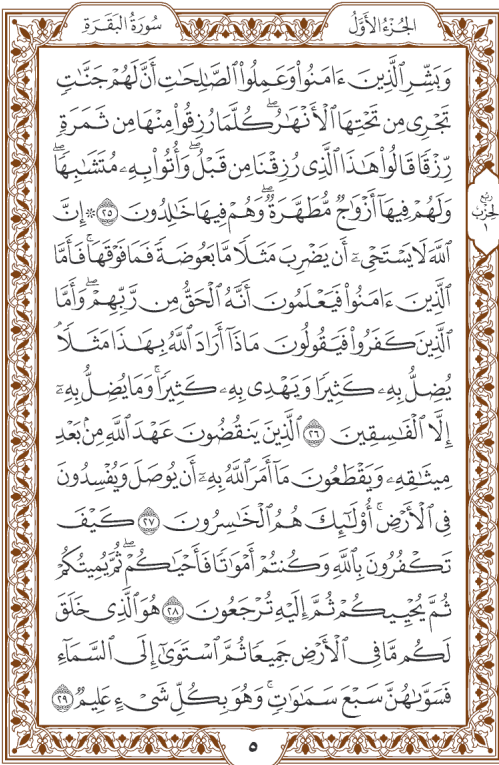 الجُزْءُ الأَوَّلُ
سُورَةُ البَقَرَةِ
وَبَشِّرِ ٱلَّذِينَ ءَامَنُوا۟ وَعَمِلُوا۟ ٱلصَّٰلِحَٰتِ أَنَّ لَهُمْ جَنَّٰتٍ
تَجْرِى مِن تَحْتِهَا ٱلْأَنْهَٰرُ ۖ كُلَّمَا رُزِقُوا۟ مِنْهَا مِن ثَمَرَةٍ
رِّزْقًا قَالُوا۟ هَٰذَا ٱلَّذِى رُزِقْنَا مِن قَبْلُ ۖ وَأُتُوا۟ بِهِۦ مُتَشَٰبِهًا ۖ
وَلَهُمْ فِيهَآ أَزْوَٰجٌ مُّطَهَّرَةٌ ۖ وَهُمْ فِيهَا خَٰلِدُونَ ٢٥ ۞ إِنَّ
ٱللَّهَ لَا يَسْتَحْىِۦٓ أَن يَضْرِبَ مَثَلًا مَّا بَعُوضَةً فَمَا فَوْقَهَا ۚ فَأَمَّا
ٱلَّذِينَ ءَامَنُوا۟ فَيَعْلَمُونَ أَنَّهُ ٱلْحَقُّ مِن رَّبِّهِمْ ۖ وَأَمَّا
ٱلَّذِينَ كَفَرُوا۟ فَيَقُولُونَ مَاذَآ أَرَادَ ٱللَّهُ بِهَٰذَا مَثَلًا ۘ
يُضِلُّ بِهِۦ كَثِيرًا وَيَهْدِى بِهِۦ كَثِيرًا ۚ وَمَا يُضِلُّ بِهِۦٓ
إِلَّا ٱلْفَٰسِقِينَ ٢٦ ٱلَّذِينَ يَنقُضُونَ عَهْدَ ٱللَّهِ مِنۢ بَعْدِ
مِيثَٰقِهِۦ وَيَقْطَعُونَ مَآ أَمَرَ ٱللَّهُ بِهِۦٓ أَن يُوصَلَ وَيُفْسِدُونَ
فِى ٱلْأَرْضِ ۚ أُو۟لَٰٓئِكَ هُمُ ٱلْخَٰسِرُونَ ٢٧ كَيْفَ
تَكْفُرُونَ بِٱللَّهِ وَكُنتُمْ أَمْوَٰتًا فَأَحْيَٰكُمْ ۖ ثُمَّ يُمِيتُكُمْ
ثُمَّ يُحْيِيكُمْ ثُمَّ إِلَيْهِ تُرْجَعُونَ ٢٨ هُوَ ٱلَّذِى خَلَقَ
لَكُم مَّا فِى ٱلْأَرْضِ جَمِيعًا ثُمَّ ٱسْتَوَىٰٓ إِلَى ٱلسَّمَآءِ
فَسَوَّىٰهُنَّ سَبْعَ سَمَٰوَٰتٍ ۚ وَهُوَ بِكُلِّ شَىْءٍ عَلِيمٌ ٢٩
ربع
الحزب
١
٥